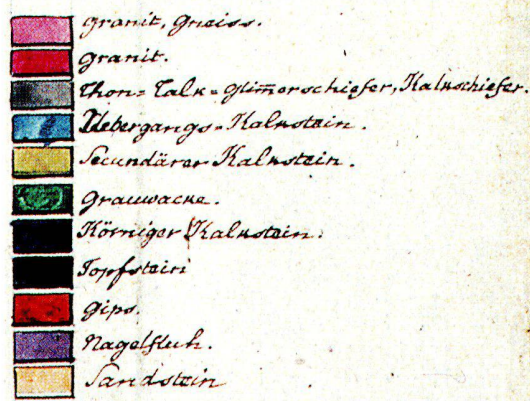 Granit, Gneiss.
Granit.
Thon= Talk= Glimerschiefer, Kalkschiefer.
Uebergangs=Kalkstein.
Secundärer Kalkstein.
Grauwacke.
Körniger Kalkstein.
Topfstein
Gips.
Nagelfluh.
Sandstein